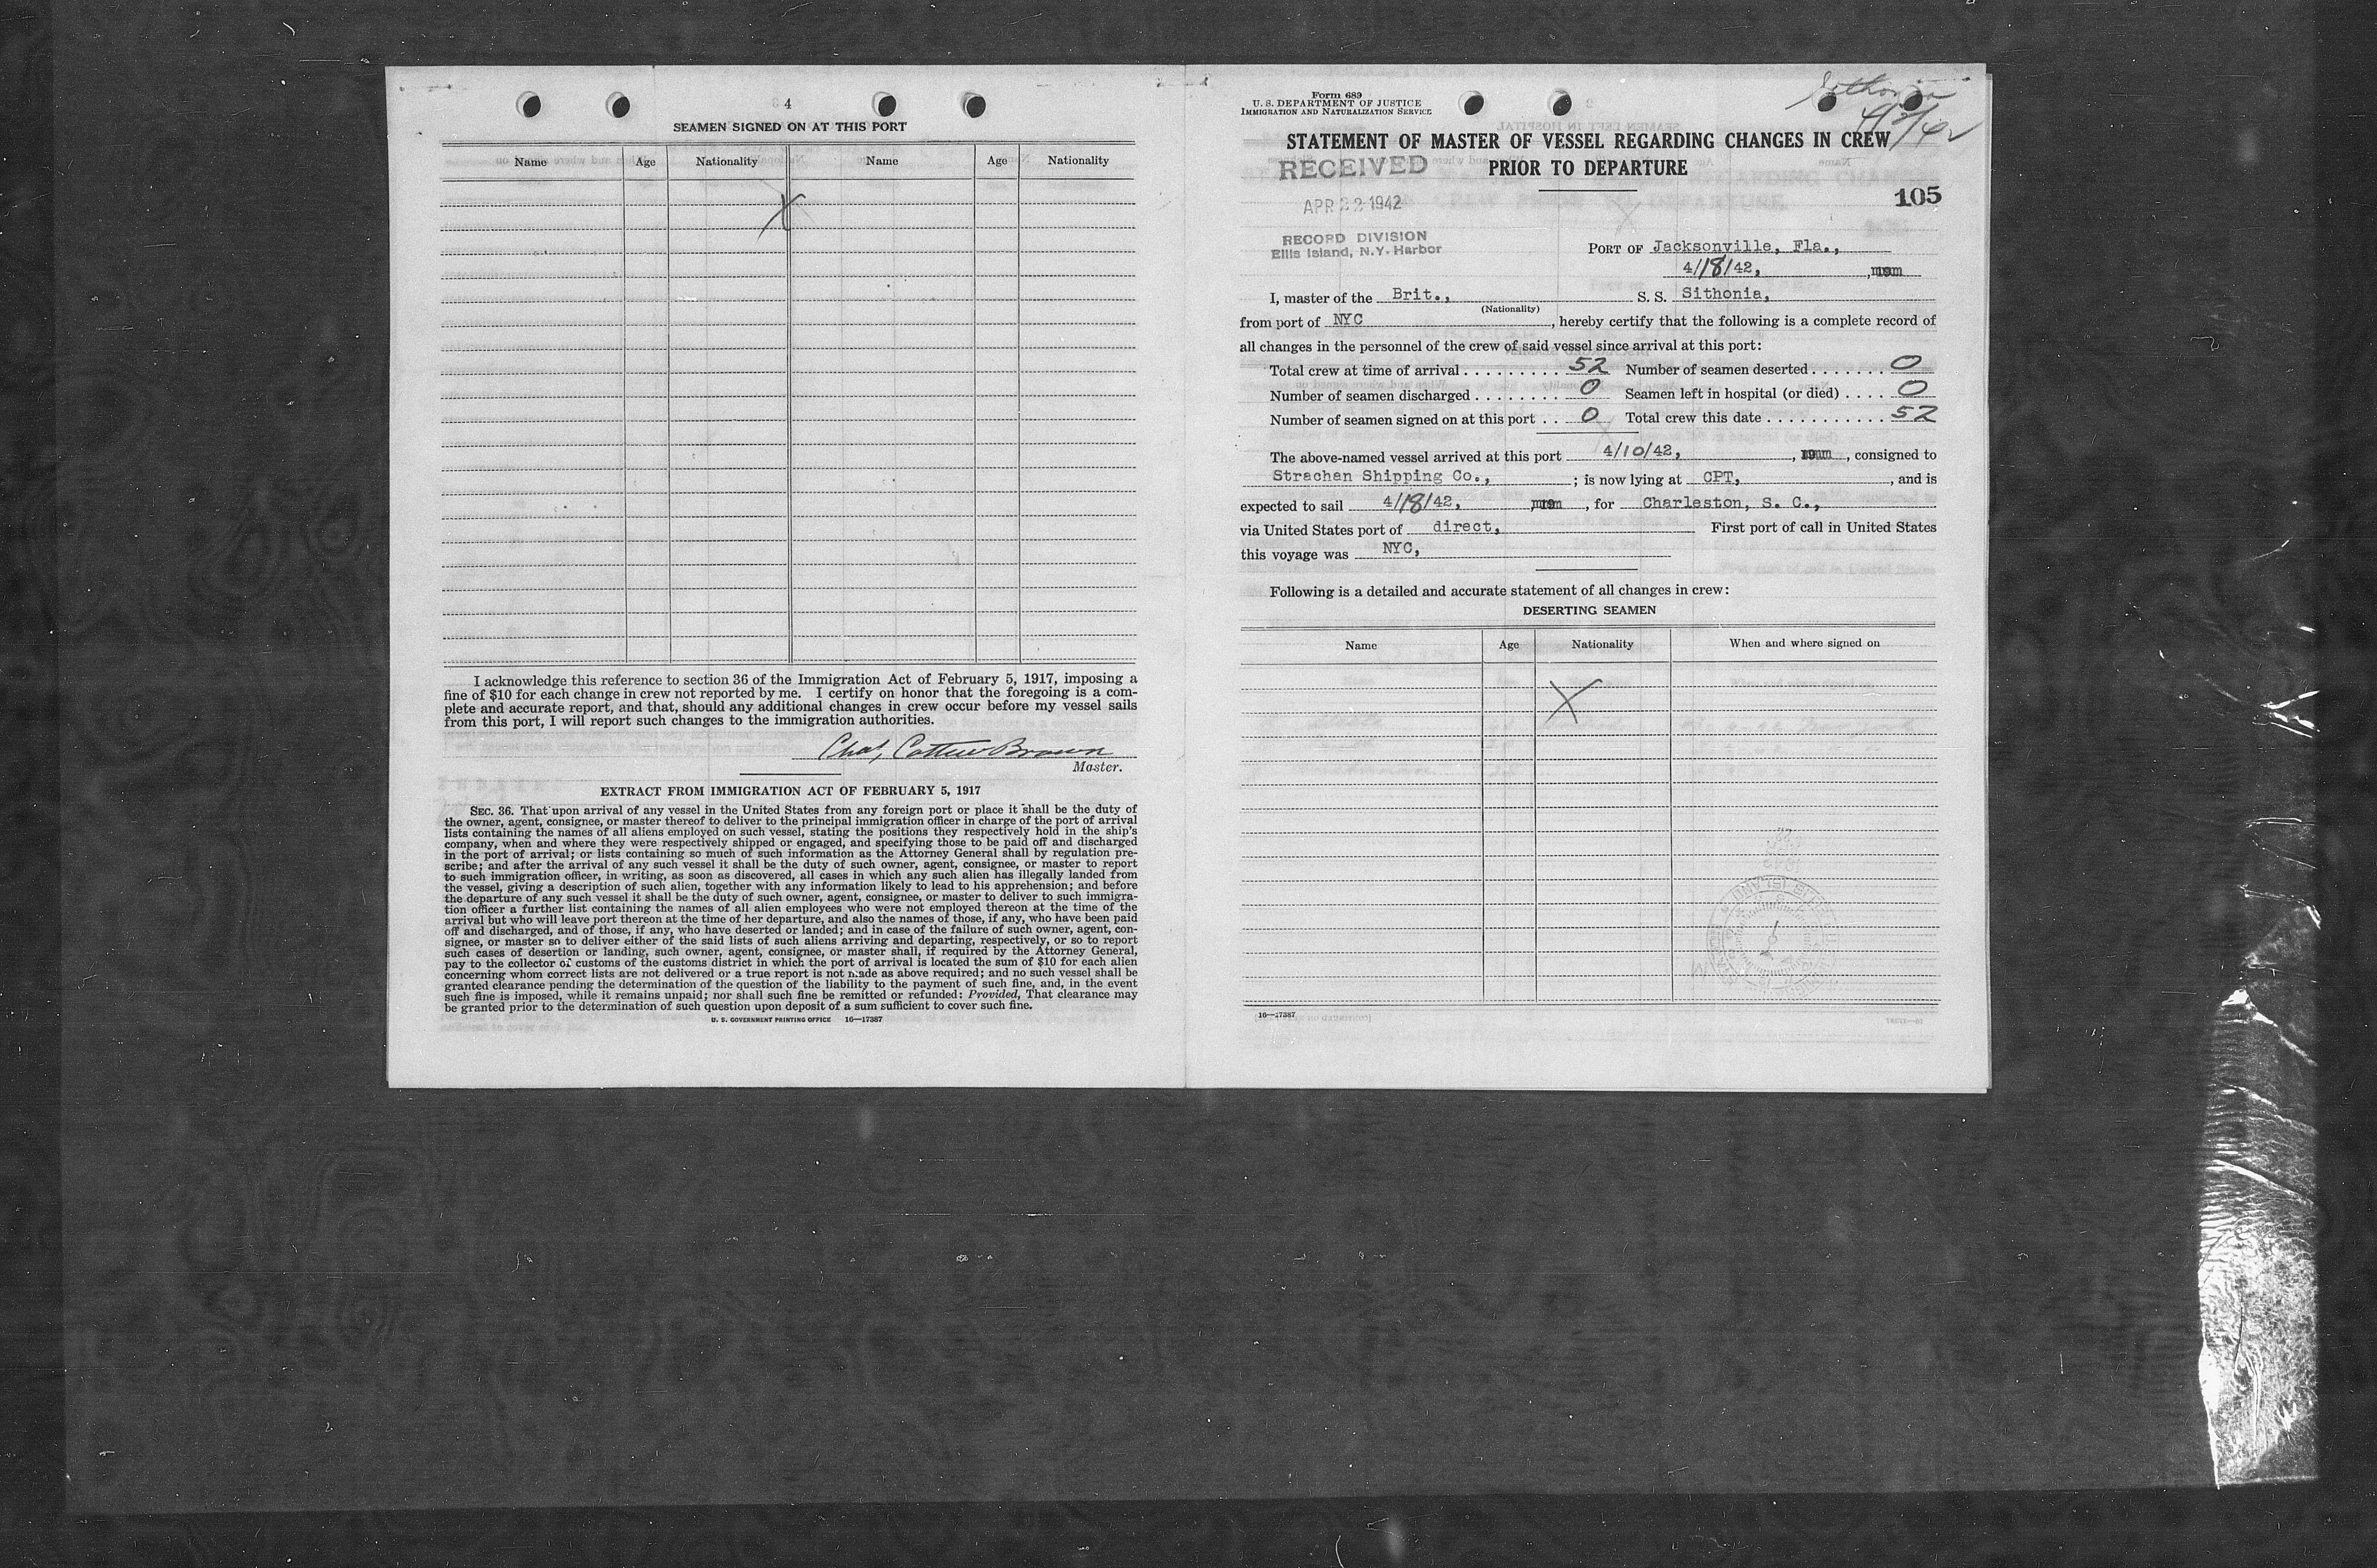 4
SEAMEN SIGNED ON AT THIS PORT
Name Age Nationality Name Age Nationality
X
I acknowledge this reference to section 36 of the Immigration Act of February 5, 1917, imposing a
fine of $10 for each change in crew not reported by me. I certify on honor that the foregoing is a com-
plete and accurate report, and that, should any additional changes in crew occur before my vessel sails
from this port, I will report such changes to the immigration authorities.
Brown
Master.
EXTRACT FROM IMMIGRATION ACT OF FEBRUARY 5, 1917
SEC. 36. That upon arrival of any vessel in the United States from any foreign port or place it shall be the duty of
the owner, agent, consignee, or master thereof to deliver to the principal immigration officer in charge of the port of arrival
lists containing the names of all aliens employed on such vessel, stating the positions they respectively hold in the ship's
company, when and where they were respectively shipped or engaged, and specifying those to be paid off and discharged
in the port of arrival; or lists containing so much of such information as the Attorney General shall by regulation pre-
scribe; and after the arrival of any such vessel it shall be the duty of such owner, agent, consignee, or master to report
to such immigration officer, in writing, as soon as discovered, all cases in which any such alien has illegally landed from
the vessel, giving a description of such alien, together with any information likely to lead to his apprehension; and before
the departure of any such vessel it shall be the duty of such owner, agent, consignee, or master to deliver to such immigra-
tion officer a further list containing the names of all alien employees who were not employed thereon at the time of the
arrival but who will leave port thereon at the time of her departure, and also the names of those, if any, who have been paid
off and discharged, and of those, if any, who have deserted or landed; and in case of the failure of such owner, agent, con-
signee, or master so to deliver either of the said lists of such aliens arriving and departing, respectively, or so to report
such cases of desertion or landing, such owner, agent, consignee, or master shall, if required by the Attorney General,
pay to the collector of customs of the customs district in which the port of arrival is located the sum of $10 for each alien
concerning whom correct lists are not delivered or a true report is not made as above required; and no such vessel shall be
granted clearance pending the determination of the question of the liability to the payment of such fine, and, in the event
such fine is imposed, while it remains unpaid; nor shall such fine be remitted or refunded: Provided, That clearance may
be granted prior to the determination of such question upon deposit of a sum sufficient to cover such fine.
U. S. GOVERNMENT PRINTING OFFICE 16—17387
Form 689
U. S. DEPARTMENT OF JUSTICE
IMMIGRATION AND NATURALIZATION SERVICE
Sithonia
STATEMENT OF MASTER OF VESSEL REGARDING CHANGES IN CREW
PRIOR TO DEPARTURE
RECEIVED
APR 22 1942
RECORD DIVISION
Ellis Island, N.Y. Harbor
105
PORT OF Jacksonville, Fla.,
4/18/42,
I, master of the Brit., S. S. Sithonia,
(Nationality)
from port of NYC, hereby certify that the following is a complete record of
all changes in the personnel of the crew of said vessel since arrival at this port:
Total crew at time of arrival 52 Number of seamen deserted 0
Number of seamen discharged 0 Seamen left in hospital (or died) 0
Number of seamen signed on at this port 0 Total crew this date 52
The above-named vessel arrived at this port 4/10/42, , consigned to
Strachan Shipping Co., ; is now lying at CPT, , and is
expected to sail 4/18/42, , for Charleston, S. C.,
via United States port of direct, First port of call in United States
this voyage was NYC,
Following is a detailed and accurate statement of all changes in crew:
DESERTING SEAMEN
Name Age Nationality When and where signed on
X
16—17387